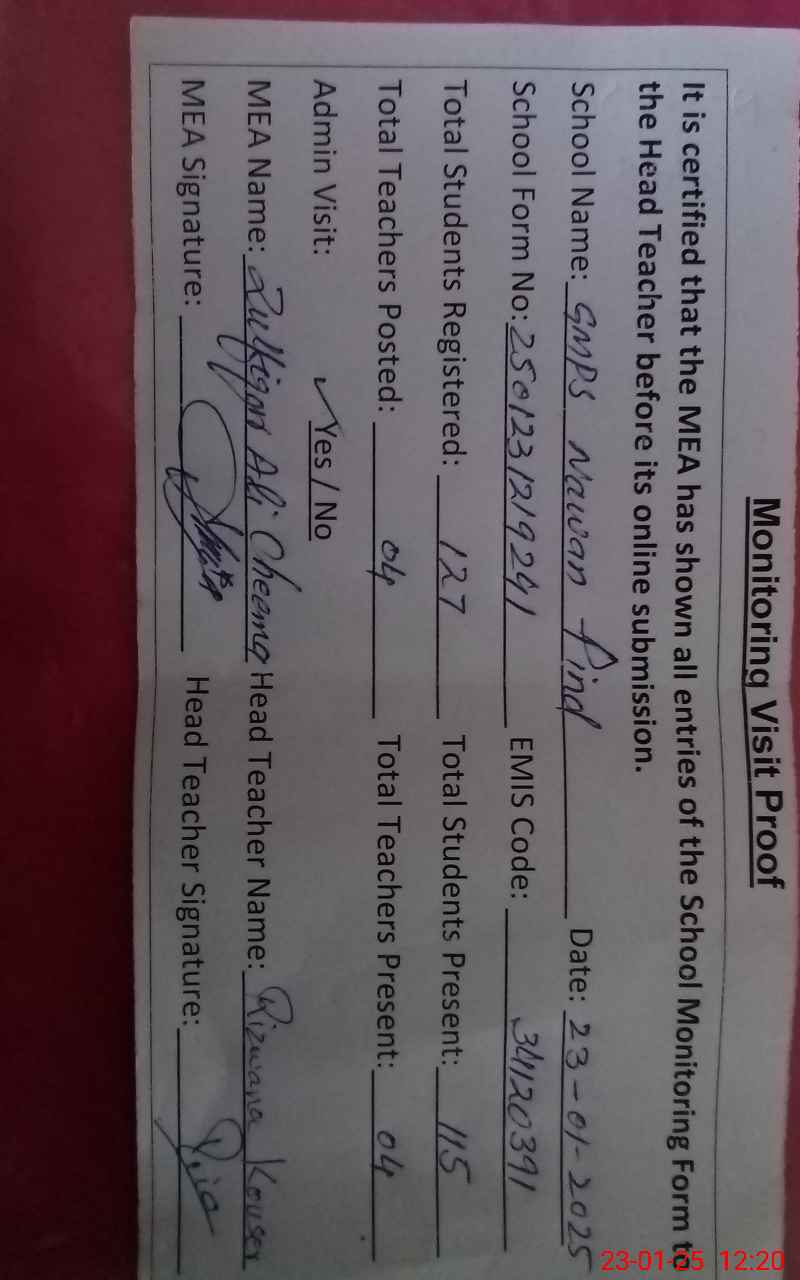 Monitoring Visit Proof
It is certified that the MEA has shown all entries of the School Monitoring Form to
the Head Teacher before its online submission.
School Name: GMPS Nawan Pind Date: 23-01-2025
School Form No: 2501231219241 EMIS Code: 34120391
Total Students Registered: 127 Total Students Present: 115
Total Teachers Posted: 04 Total Teachers Present: 04
Admin Visit: ✓Yes / No
MEA Name: Zulfiqar Ali Cheema Head Teacher Name: Rizwana Kouser
MEA Signature: Head Teacher Signature:
23-01-25 12:20